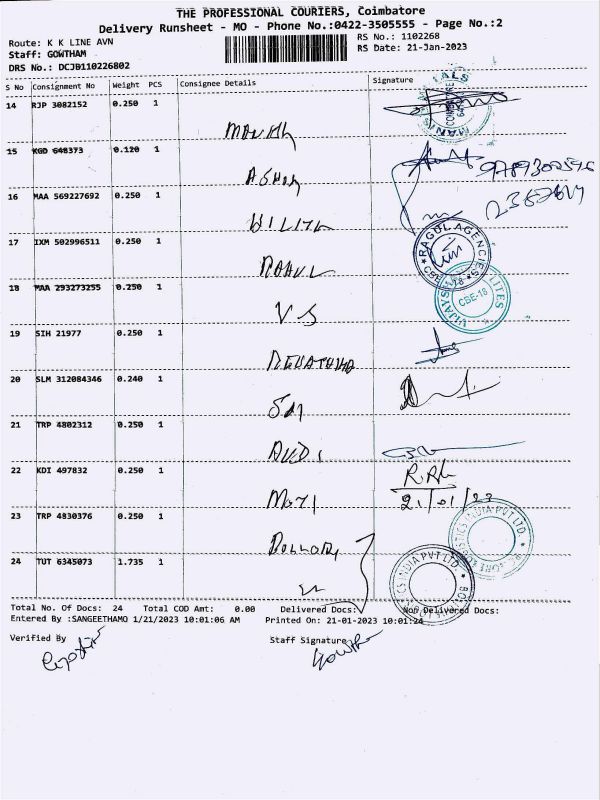 THE PROFESSIONAL COURIERS, Coimbatore
Delivery Runsheet - MO - Phone No.:0422-3505555 - Page No.:2
Route: K K LINE AVN
RS No.: 1102268
Staff: GOWTHAM
RS Date: 21-Jan-2023
DRS No.: DCJB110226802
S No Consignment No Weight PCS Consignee Details Signature
14 RJP 3082152 0.250 1
15 KGD 648373 0.120 1
16 MAA 569227692 0.250 1
17 IXM 502996511 0.250 1
RAGUL AGENCIES
18 MAA 293273255 0.250 1
CBE-18
VS
19 SIH 21977 0.250 1
20 SLM 312084346 0.240 1
21 TRP 4802312 0.250 1
22 KDI 497832 0.250 1
21/01/23
23 TRP 4830376 0.250 1
24 TUT 6345073 1.735 1
Total No. Of Docs: 24 Total COD Amt: 0.00 Delivered Docs: Non Delivered Docs:
Entered By :SANGEETHAMO 1/21/2023 10:01:06 AM Printed On: 21-01-2023 10:01:24
Verified By Staff Signature